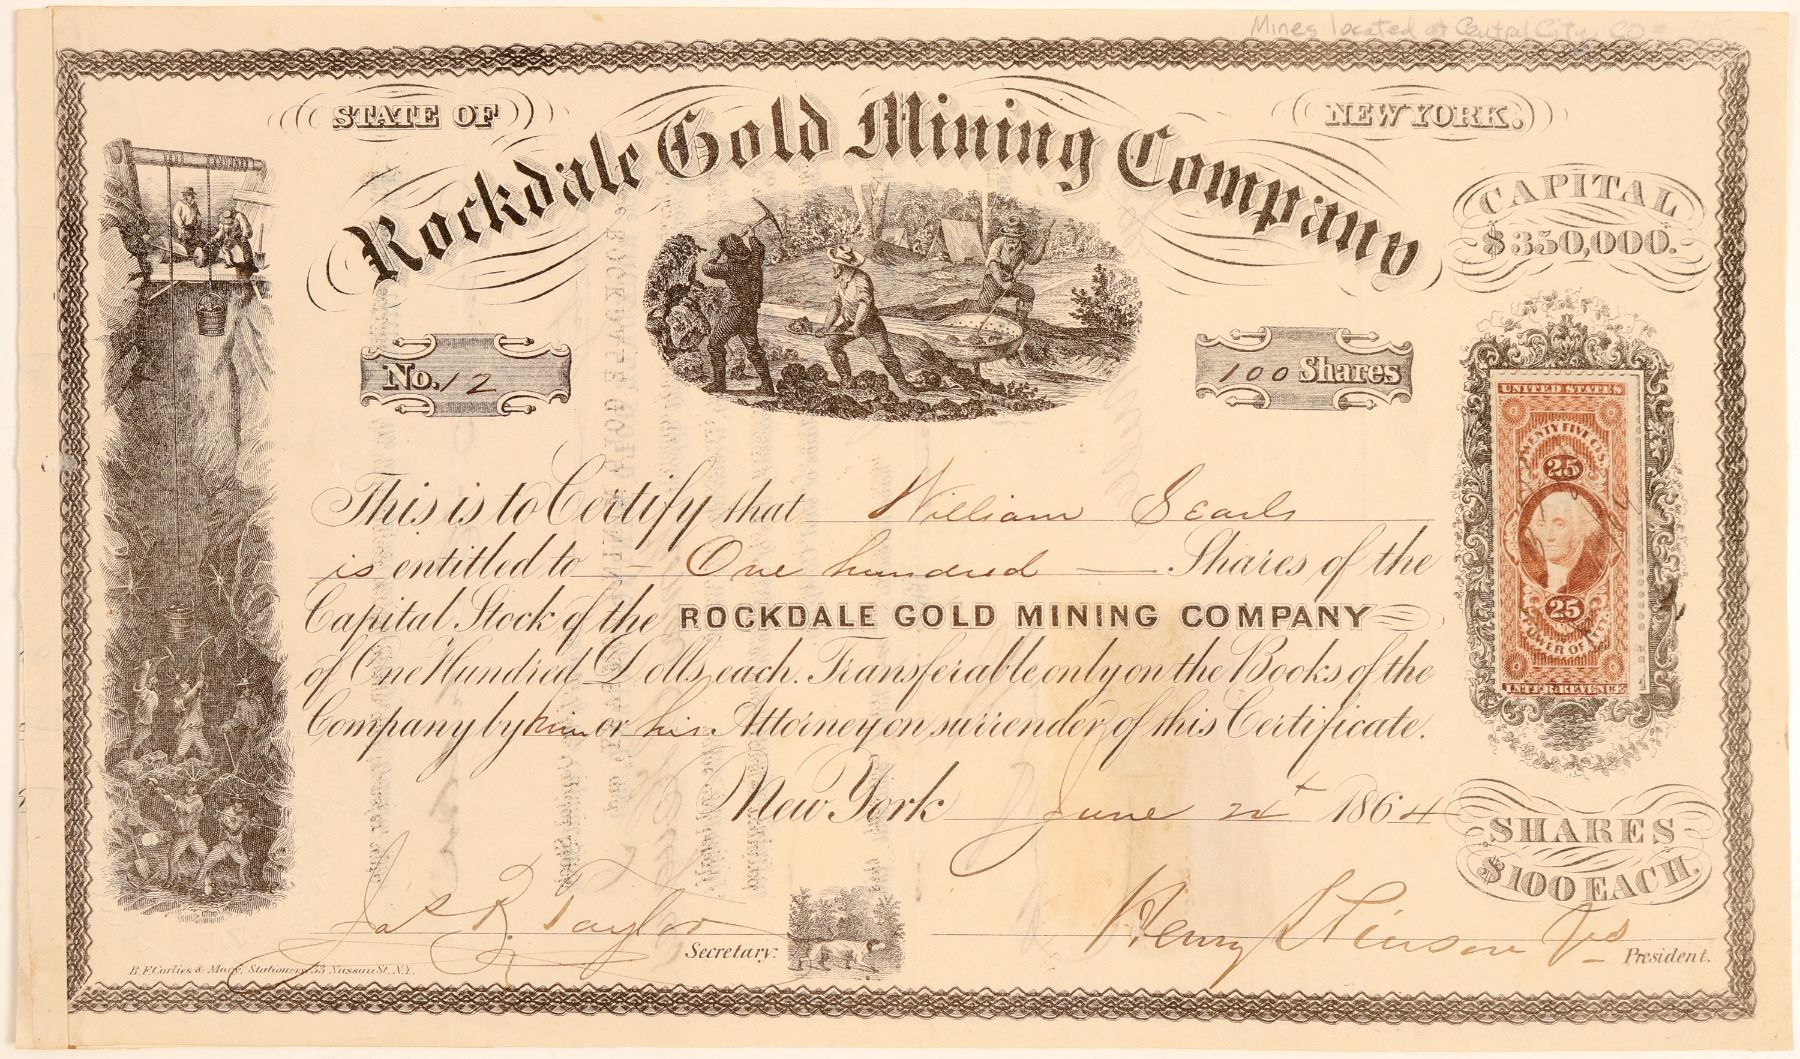 Mines located at Central City, CO
STATE OF NEW YORK.
Rockdale Gold Mining Company
CAPITAL
$350,000.
No. 12
100 Shares
UNITED STATES
TWENTY FIVE CTS.
25
25
POWER OF ATT'Y
INTER. REVENUE
This is to Certify that William Searls
is entitled to – One hundred — Shares of the
Capital Stock of the ROCKDALE GOLD MINING COMPANY
of One Hundred Dolls, each. Transferable only on the Books of the
Company by him or his Attorney on surrender of this Certificate.
New York June 1864
SHARES
$100 EACH.
Jas R. Taylor Secretary.
Henry Stinson President.
B. F. Corlies & Macy, Stationers, 33 Nassau St. N.Y.